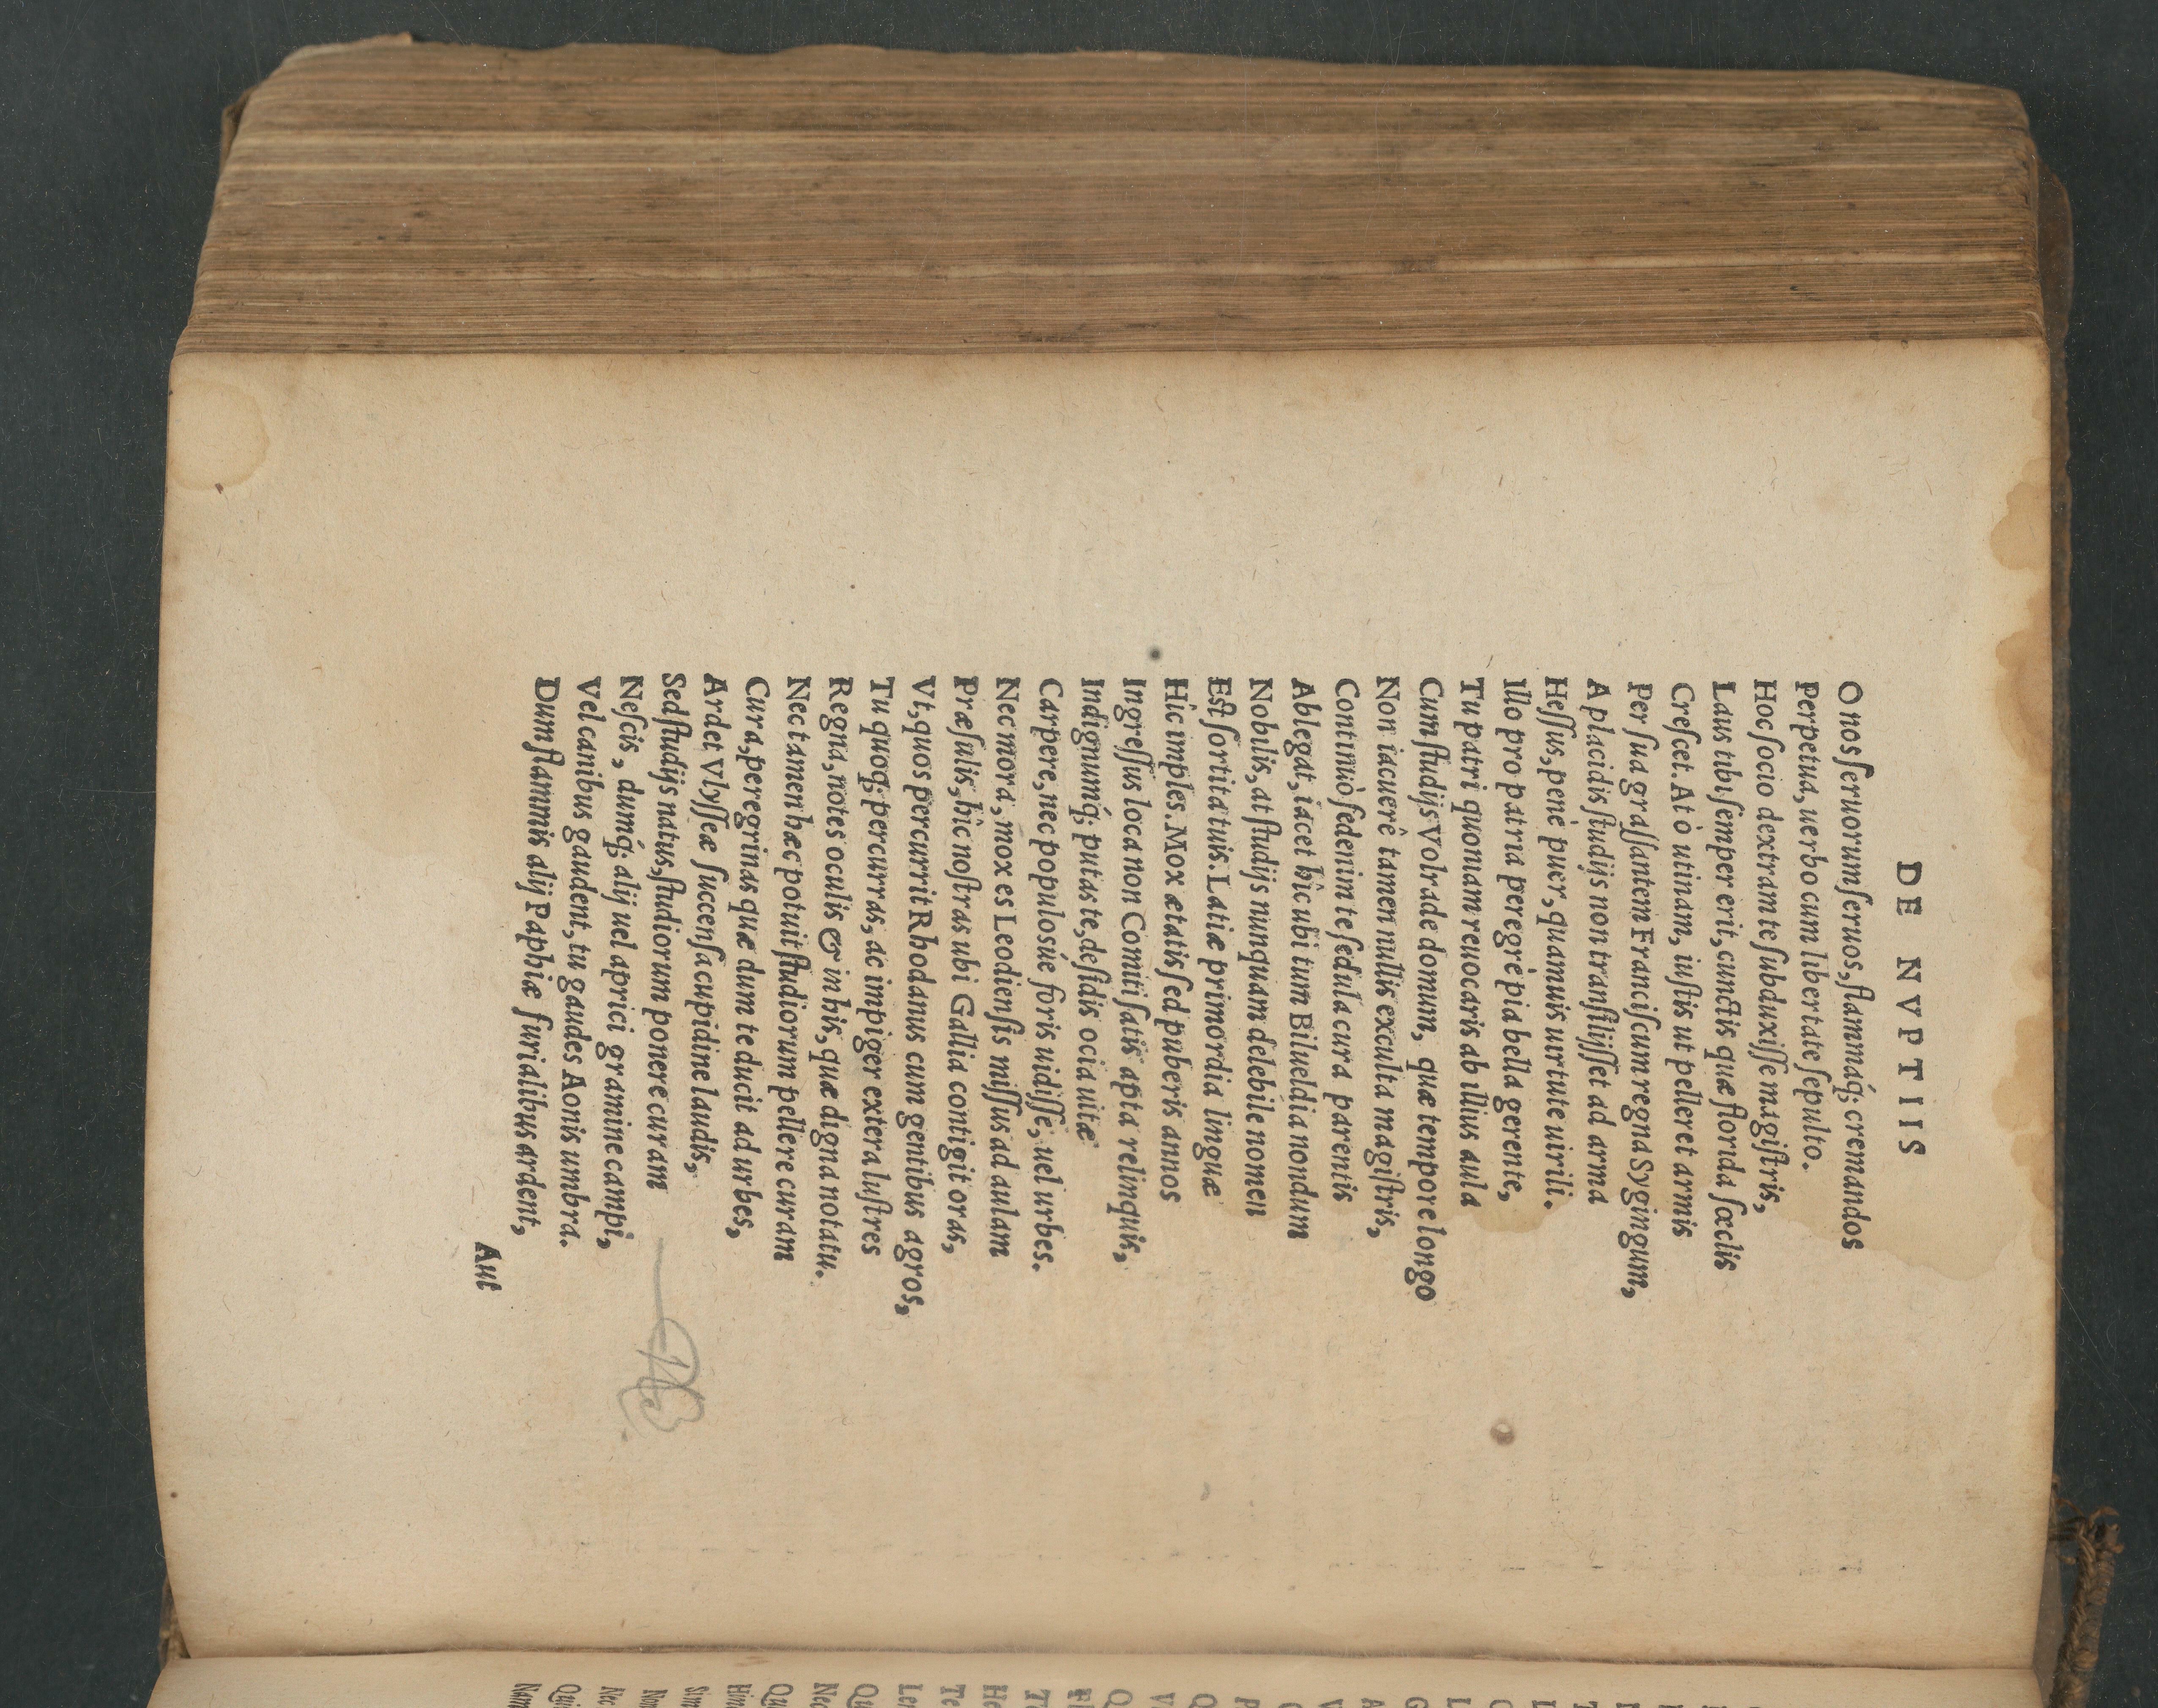 DE NVPTIIS
O nos ſeruorum ſeruos, flammáq́; cremandos
Perpetua, uerbo cum libertate ſepulto.
Hoc ſocio dextram te ſubduxiſſe magiſtris,
Laus tibi ſemper erit, cunctis quæ florida ſæclis
Creſcet. At ò utinam, iuſtis ut pelleret armis
Per ſua graſſantem Franciſcum regna Sygingum,
A placidis ſtudijs non tranſilijſſet ad arma
Heſſus, penè puer, quamuis uirtute uirili.
Illo pro patria peregrè pia bella gerente,
Tu patri quoniam reuocaris ab illius aula
Cum ſtudijs Volrade domum, quæ tempore longo
Non iacuerê tamen nullis exculta magiſtris,
Continuò ſedenim te ſedula cura parentis
Ablegat, iacet hîc ubi tum Bilueldia nondum
Nobilis, at ſtudijs nunquam delebile nomen
Est ſortita tuis. Latiæ primordia linguæ
Hîc imples. Mox ætatis ſed puberis annos
Ingreſſus loca non Comiti ſatis apta relinquis,
Indignumq́; putas te, deſidis ocia uitæ
Carpere, nec populosúe foris uidiſſe, uel urbes.
Nec mora, mox es Leodienſis miſſus ad aulam
Præſulis, hîc noſtras ubi Gallia contigit oras,
Vt, quos percurrit Rhodanus cum gentibus agros,
Tu quoq; percurras, ac impiger extera luſtres
Regna, notes oculis & in his, quæ digna notatu.
Nec tamen hæc potuit ſtudiorum pellere curam
Cura, peregrinas quæ dum te ducit ad urbes,
Ardet Vlyſſeæ ſuccenſa cupidine laudis,
Sed ſtudijs natus, ſtudiorum ponere curam
Neſcis, dumq́; alij uel aprici gramine campi,
Vel canibus gaudent, tu gaudes Aonis umbra.
Dum flammis alij Paphiæ furialibus ardent,
Aut
Nam
Qui
Nec
Non
Sim
Hin
Qu
Nec
Qu
Len
Te
He